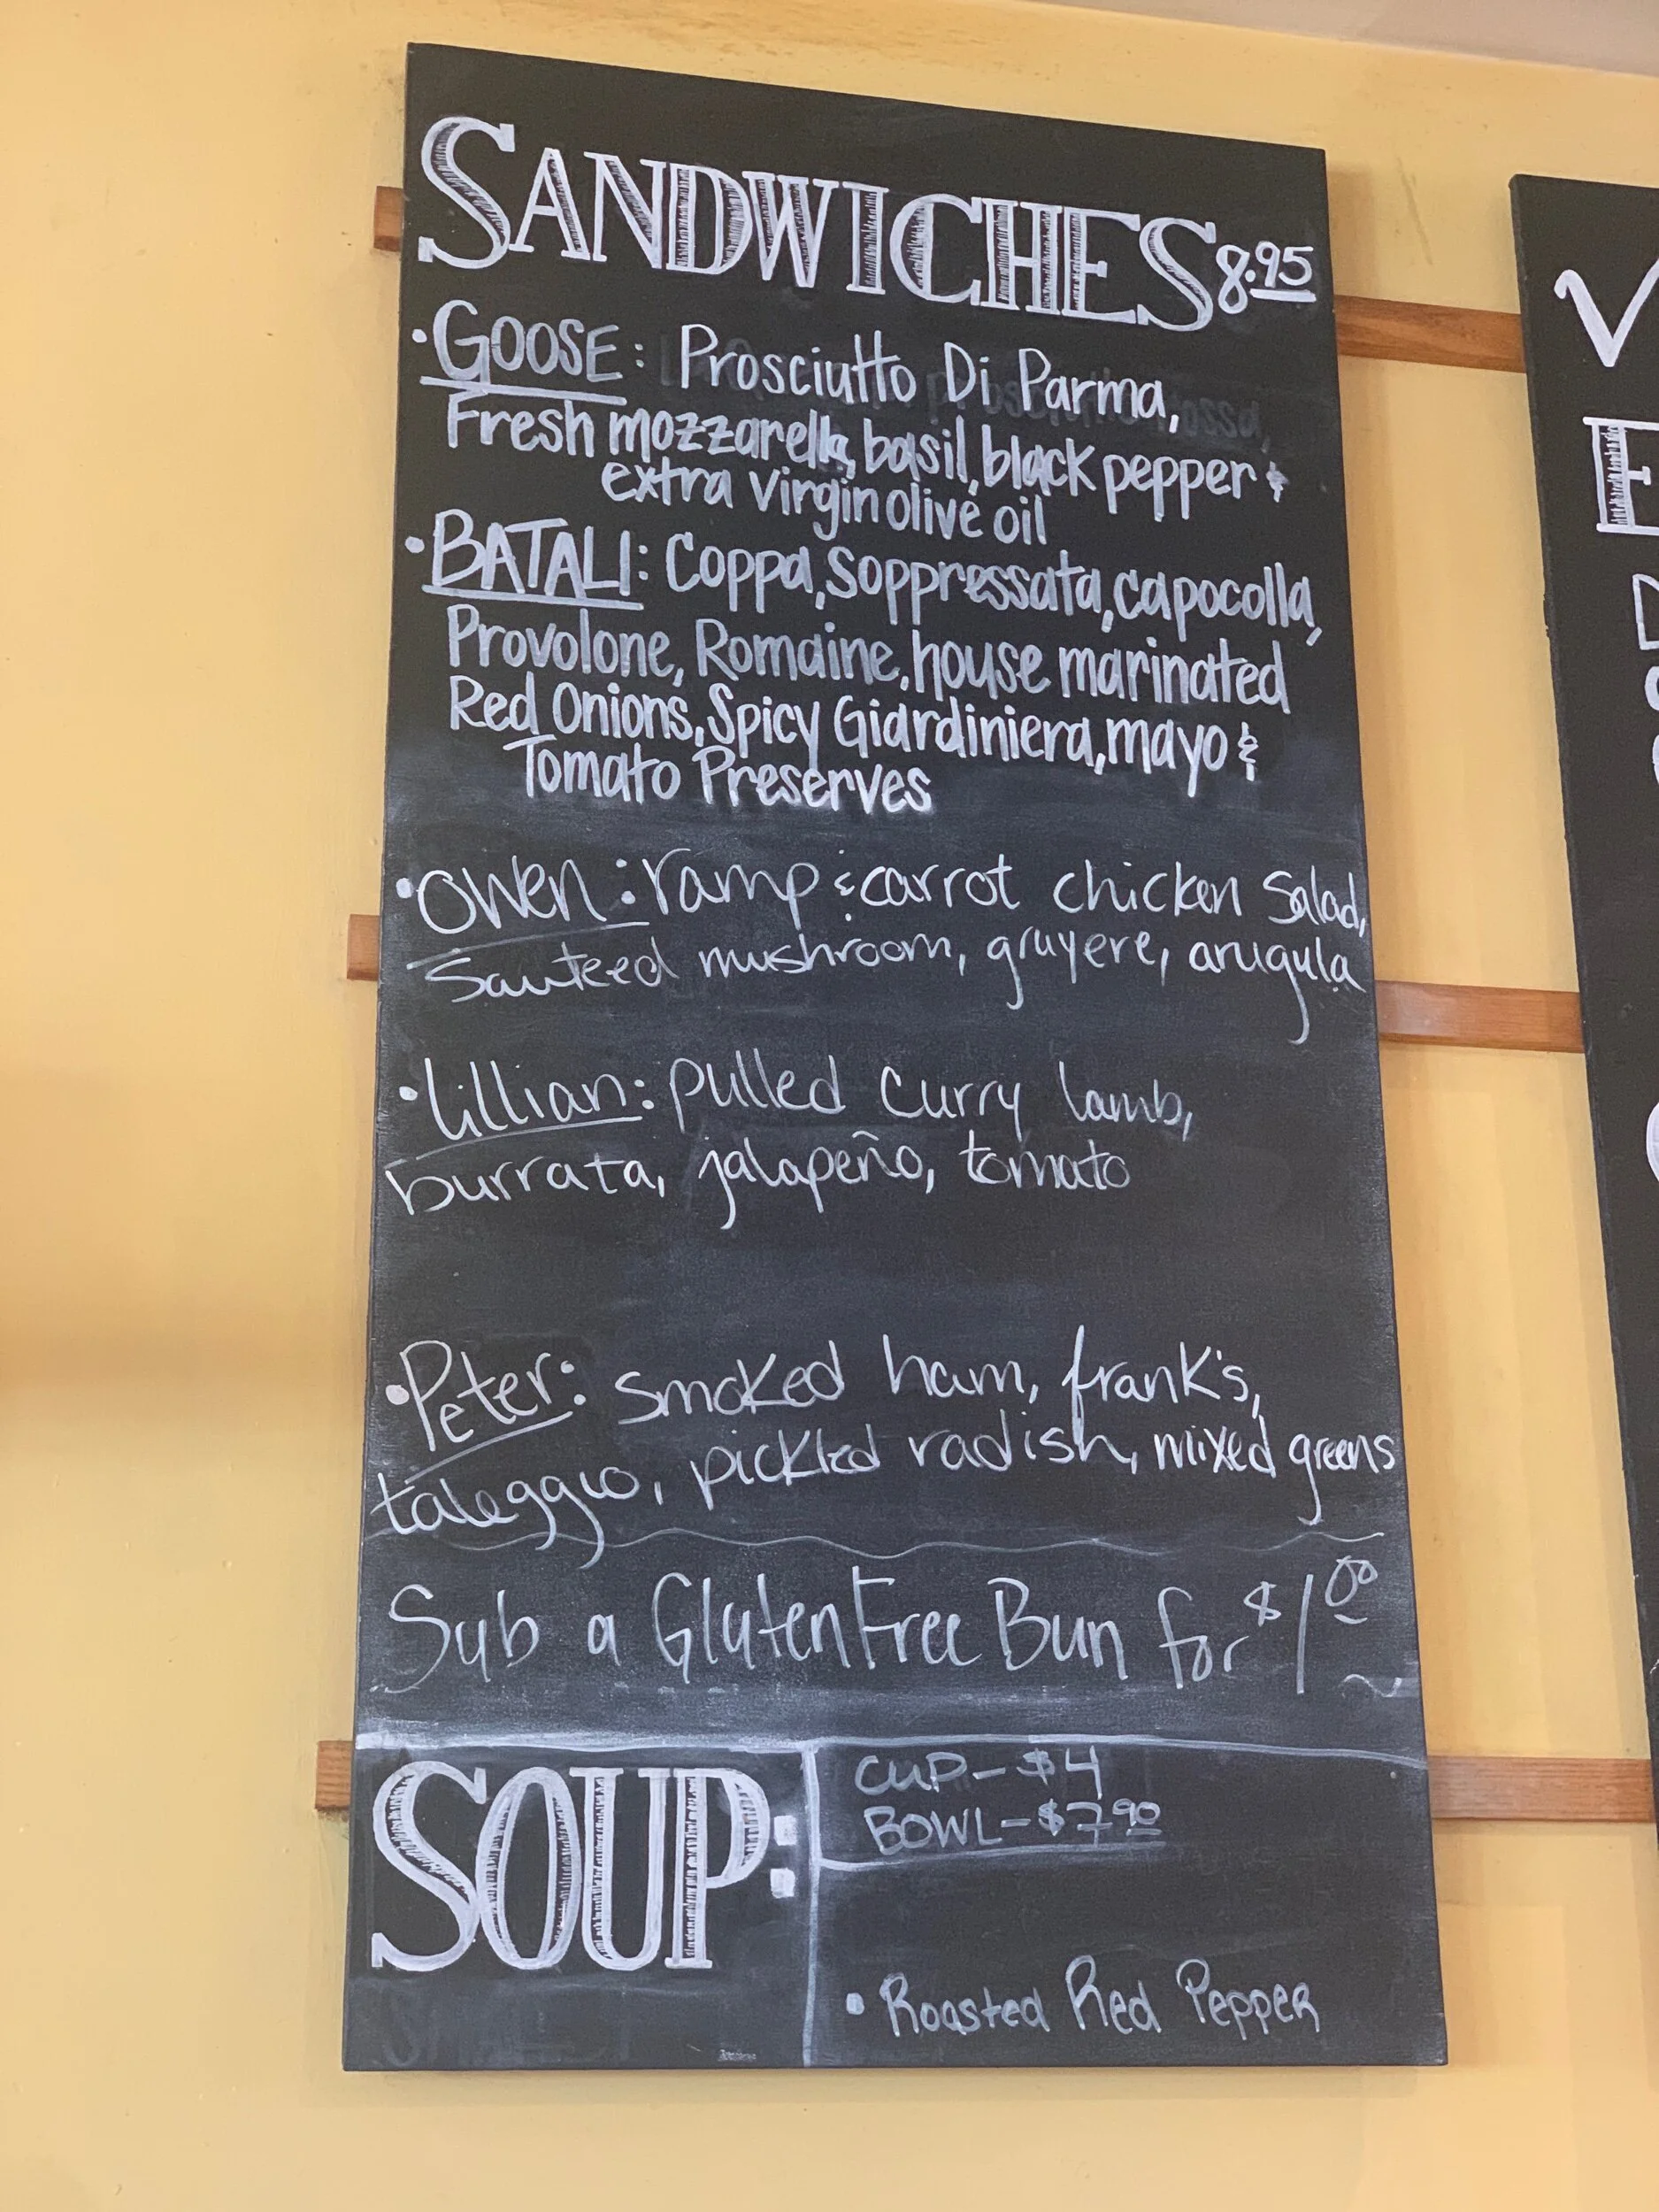 SANDWICHES 8.95
• GOOSE: Prosciutto Di Parma,
Fresh mozzarella, basil, black pepper &
extra virgin olive oil
• BATALI: Coppa, Soppressata, capocolla,
Provolone, Romaine, house marinated
Red Onions, Spicy Giardiniera, mayo &
Tomato Preserves
• Owen: ramp & carrot chicken Salad,
Sauteed mushroom, gruyere, arugula
• Lillian: pulled curry lamb,
burrata, jalapeño, tomato
• Peter: smoked ham, frank's,
taleggio, pickled radish, mixed greens
Sub a Gluten Free Bun for $1.00
SOUP:
CUP - $4
BOWL - $7.90
• Roasted Red Pepper